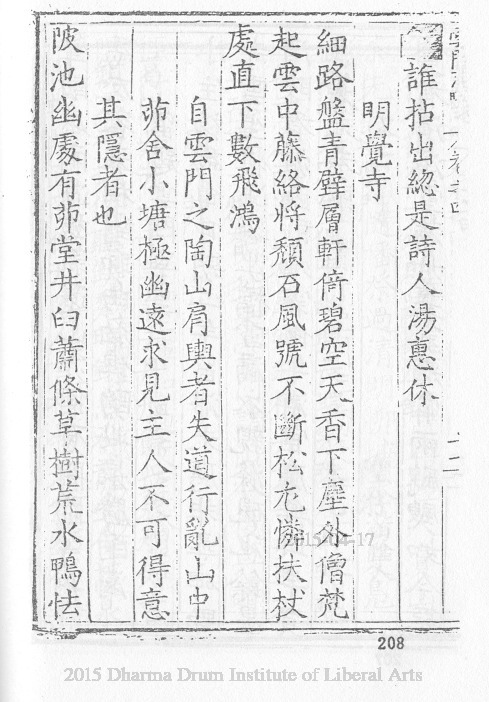 誰拈出總是詩人湯惠休
明覺寺
細路盤青壁層軒倚碧空天香下塵外僧梵
起雲中藤絡將頹石風號不斷松尤憐扶杖
處直下數飛鴻
自雲門之陶山肩輿者失道行亂山中
茆舍小塘極幽邃求見主人不可得意
其隱者也
陂池幽處有茆堂井臼蕭條草樹荒水鴨怯
208
2015 Dharma Drum Institute of Liberal Arts